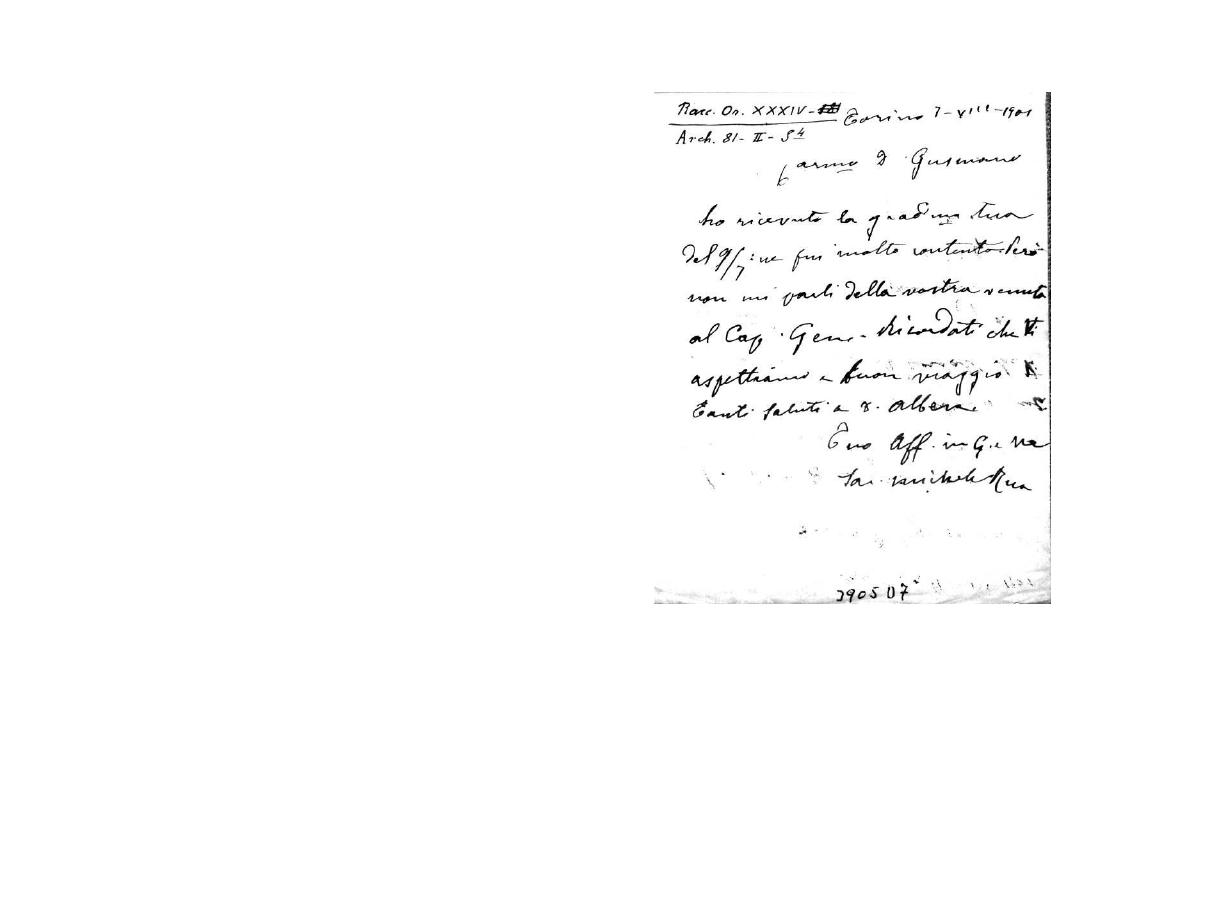 Racc. On. XXXIV-
Torino 7-VIII-1901
Arch. 81-II-S4
Carmo D Gusmano
ho ricevuto la gradma tua
del 9/7: ne fui molto contento. Però
non mi parli della vostra venuta
al Cap. Gene. Ricordati che Vi
aspettiamo e buon viaggio
Tanti saluti a D. Albera.
Tuo Aff. in G. e Ma
Sac. Michele Rua
3905 D7